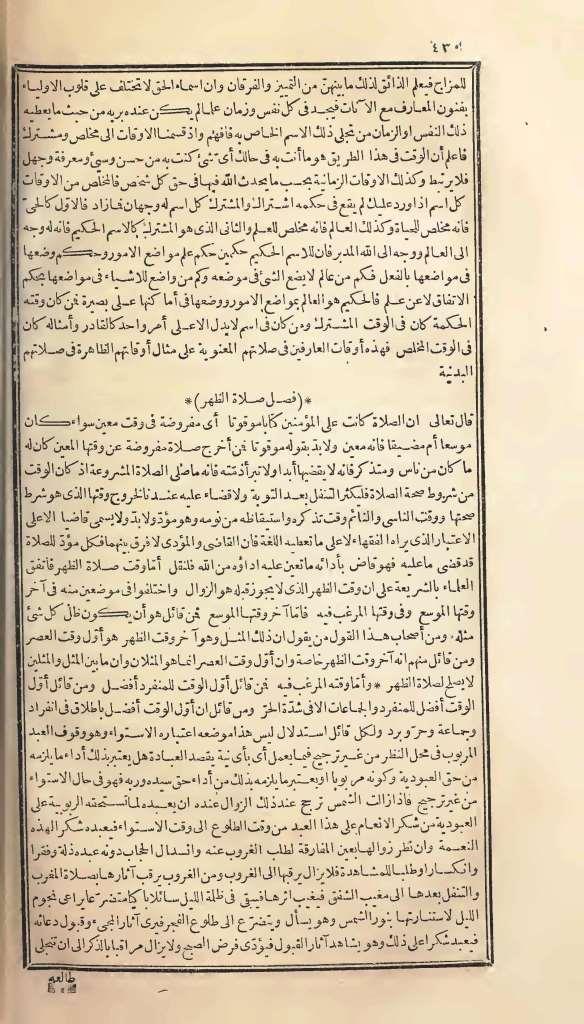 ٤٣٥
للمزاج فيعلم الذائق لذلك ما بينهنّ من التمييز والفرقان وان اسماء الحق لا تختلف على قلوب الاولياء
بفنون المعارف مع الآنات فيجد فى كل نفس وزمان علما لم يكن عنده بربه من حيث ما يعطيه
ذلك النفس او الزمان من تجلى ذلك الاسم الخاص به فافهم واذ قسمنا الاوقات الى مخلص ومشترك
فاعلم أن الوقت فى هذا الطريق هو ما أنت به فى حالك أىّ شئ كنت به من حسن وسىّء ومعرفة وجهل
فلا يرتبط وكذلك الاوقات الزمانية بحسب ما يحدث الله فيها فى حق كل شخص فالمخلص من الاوقات
كل اسم اذا ورد عليك لم يقع فى حكمه اشتراك والمشترك كل اسم له وجهان فازاد فالاول كالحىّ
فانه مخلص للحياة وكذلك العالم فانه مخلص للعلم والثانى الذى هو المشترك كالاسم الحكيم فانه له وجه
الى العالم ووجه الى الله المدبر فان للاسم الحكيم حكمين حكم علم مواضع الامور وحكم وضعها
فى مواضعها بالفعل فكم من عالم لا يضع الشئ فى موضعه وكم من واضع للاشياء فى مواضعها بحكم
الاتفاق لا عن علم فالحكيم هو العالم بمواضع الامور ووضعها فى أماكنها على بصيرة فمن كان وقته
الحكمة كان فى الوقت المشترك ومن كان فى اسم لا يدل الا على أمر واحد كالقادر وأمثاله كان
فى الوقت المخلص فهذه أوقات العارفين فى صلاتهم المعنوية على مثال أوقاتهم الظاهرة فى صلاتهم
البدنية
*(فصل صلاة الظهر)*
قال تعالى ان الصلاة كانت على المؤمنين كتابا موقوتا أى مفروضة فى وقت معين سواء كان
موسعا أم مضيقا فانه معين ولا بد بقوله موقوتا فمن أخرج صلاة مفروضة عن وقتها المعين كان له
ما كان من ناس ومتذكر فانه لا يقضيها أبدا ولا تبرأ ذمته فانه ما صلى الصلاة المشروعة اذ كان الوقت
من شروط صحة الصلاة فليكثر التنفل بعد التوبة ولا قضاء عليه عندنا لخروج وقتها الذى هو شرط
صحتها ووقت الناسى والنائم وقت تذكره واستيقاظه من نومه وهو مؤدّ ولا بدّ ولا يسمى قاضيا الا على
الاعتبار الذى يراه الفقهاء لا على ما تعطيه اللغة فان القاضى والمؤدى لا فرق بينهما فكل مؤدّ للصلاة
قد قضى ما عليه فهو قاض بأدائه ما تعين عليه اداؤه من الله فلنقل أما وقت صلاة الظهر فاتفق
العلماء بالشريعة على ان وقت الظهر الذى لا يجوز قبله هو الزوال واختلفوا فى موضعين منه فى آخر
وقتها الموسع وفى وقتها المرغب فيه فاما آخر وقتها الموسع فمن قائل هو أن يكون ظل كل شئ
مثله ومن أصحاب هذا القول من يقول ان ذلك المثل وهو آخر وقت الظهر هو أوّل وقت العصر
ومن قائل منهم انه آخر وقت الظهر خاصة وان أوّل وقت العصر انما هو المثلان وان ما بين المثل والمثلين
لا يصلح لصلاة الظهر * وأما وقته المرغب فيه فمن قائل أوّل الوقت للمنفرد أفضل ومن قائل أوّل
الوقت أفضل للمنفرد والجماعات الا فى شدّة الحرّ ومن قائل ان أوّل الوقت أفضل باطلاق فى انفراد
وجماعة وحرّ وبرد ولكل قائل استدلال ليس هذا موضعه اعتباره الاستواء وهو وقوف العبد
المربوب فى محل النظر من غير ترجيح فيما يعمل أى بأى نية يقصد العبادة هل يعتبر بذلك أداء ما يلزمه
من حق العبودية وكونه مربوبا او يعتبر ما يلزمه بذلك من أداء حق سيده وربه فهو فى حال الاستواء
من غير ترجيح فاذا زالت الشمس ترجح عند ذلك الزوال عنده ان يعبده لما تستحقه الربوبية على
العبودية من شكر الانعام على هذا العبد من وقت الطلوع الى وقت الاستواء فيعبده شكرا لهذه
النعمة وان نظر زوالها بعين المفارقة لطلب الغروب عنه واسدال الحجاب دونه عبده ذلة وفقرا
وانكسارا وطلبا للمشاهدة فلا يزال يرقبها الى الغروب ومن الغروب يرقب آثارها بصلاة المغرب
والتنفل بعدها الى مغيب الشفق فيغيب اثرها فيبقى فى ظلمة الليل سائلا باكيا متضرّعا يراعى نجوم
الليل لاستنارتها بنور الشمس وهو يسأل ويتضرّع الى طلوع الفجر فيرى آثار المجىء وقبول دعائه
فيعبد شكرا على ذلك وهو يشاهد آثار القبول فيؤدّى فرض الصبح ولا يزال مراقبا بالذكر الى ان تتجلى
طالعة